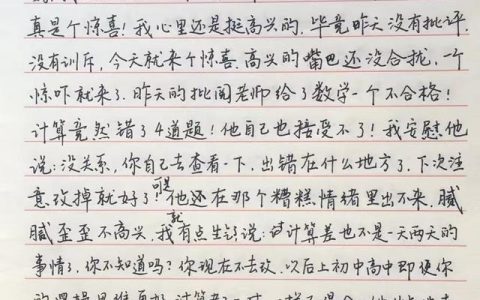 真是个惊喜!我心里还是挺高兴的,毕竟昨天没有批评,
没有训斥,今天就来个惊喜,高兴的嘴巴还没合拢,一个
惊吓就来了.昨天的批阅老师给了数学一个不合格!
计算竟然错了4道题!他自己也接受不了!我安慰他
说:没关系,你自己去查看一下,出错在什么地方了,下次注
意改掉就好了!可是他还在那个糟糕情绪里出不来,腻
腻歪歪不高兴,我就有点生气说:计算差也不是一天两天的
事情了,你不知道吗?你现在不去改,以后上初中高中即便你
的逻辑思维再好,计算